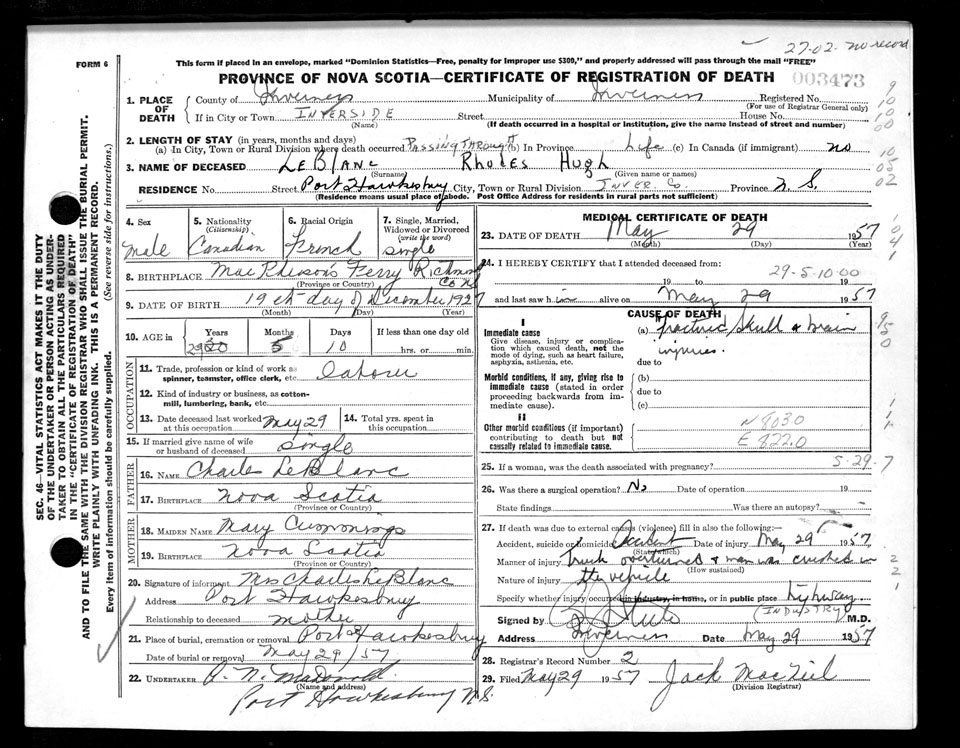 27-02. no record
FORM 6
This form if placed in an envelope, marked "Dominion Statistics—Free, penalty for improper use $300," and properly addressed will pass through the mail "FREE"
PROVINCE OF NOVA SCOTIA—CERTIFICATE OF REGISTRATION OF DEATH
003473
1. PLACE OF DEATH
County of Inverness Municipality of Inverness Registered No.
(For use of Registrar General only)
If in City or Town INVERSIDE Street House No.
(Name) (If death occurred in a hospital or institution, give the name instead of street and number)
2. LENGTH OF STAY (in years, months and days)
(a) In City, Town or Rural Division where death occurred PASSING THROUGH (b) In Province Life (c) In Canada (if immigrant) no
3. NAME OF DECEASED LeBlanc Rhodes Hugh
(Surname) (Given name or names)
RESIDENCE No. Street Port Hawkesbury City, Town or Rural Division INVER. Co. Province N. S.
(Residence means usual place of abode. Post Office Address for residents in rural parts not sufficient)
4. Sex
male
5. Nationality
(Citizenship)
Canadian
6. Racial Origin
French
7. Single, Married, Widowed or Divorced
(write the word)
single
8. BIRTHPLACE MacPherson's Ferry Richmond Co NS
(Province or Country)
9. DATE OF BIRTH 19th day of December 1927
(Month) (Day) (Year)
10. AGE in
Years Months Days If less than one day old
29 5 10 hrs. or min.
OCCUPATION
11. Trade, profession or kind of work as
spinner, teamster, office clerk, etc. laborer
12. Kind of industry or business, as cotton-
mill, lumbering, bank, etc.
13. Date deceased last worked
at this occupation May 29
14. Total yrs. spent in
this occupation
15. If married give name of wife
or husband of deceased single
FATHER
16. NAME Charles LeBlanc
17. BIRTHPLACE Nova Scotia
(Province or Country)
MOTHER
18. MAIDEN NAME Mary Cummings
19. BIRTHPLACE Nova Scotia
(Province or Country)
20. Signature of informant Mrs Charles LeBlanc
Address Port Hawkesbury
Relationship to deceased mother
21. Place of burial, cremation or removal Port Hawkesbury
Date of burial or removal May 29/57
22. UNDERTAKER A. N. McDonald
(Name and address)
Port Hawkesbury N.S.
MEDICAL CERTIFICATE OF DEATH
23. DATE OF DEATH May 29 1957
(Month) (Day) (Year)
24. I HEREBY CERTIFY that I attended deceased from:
29-5-10-00
19 to 19
and last saw him alive on May 29 1957
CAUSE OF DEATH
I
Immediate cause
Give disease, injury or complica-
tion which caused death, not the
mode of dying, such as heart failure,
asphyxia, asthenia, etc.
(a) fractured skull & brain
injuries.
due to
Morbid conditions, if any, giving rise to
immediate cause (stated in order
proceeding backwards from im-
mediate cause).
(b)
due to
(c)
II
Other morbid conditions (if important)
contributing to death but not
causally related to immediate cause.
N 8030
E 822.0
25. If a woman, was the death associated with pregnancy? 5-29-7
26. Was there a surgical operation? No Date of operation 19
State findings Was there an autopsy?
27. If death was due to external causes (violence) fill in also the following:—
Accident, suicide or homicide Accident Date of injury May 29 1957
(State which)
Manner of injury truck overturned & man was crushed in
(How sustained)
Nature of injury the vehicle
Specify whether injury occurred in industry, in home, or in public place highway
(INDUSTRY)
Signed by M.D.
Address Inverness Date May 29 1957
28. Registrar's Record Number 2
29. Filed May 29 1957 Jack MacNeil
(Division Registrar)
SEC. 46—VITAL STATISTICS ACT MAKES IT THE DUTY
OF THE UNDERTAKER OR PERSON ACTING AS UNDER-
TAKER TO OBTAIN ALL THE PARTICULARS REQUIRED
IN THE "CERTIFICATE OF REGISTRATION OF DEATH"
AND TO FILE THE SAME WITH THE DIVISION REGISTRAR WHO SHALL ISSUE THE BURIAL PERMIT.
WRITE PLAINLY WITH UNFADING INK. THIS IS A PERMANENT RECORD.
Every item of information should be carefully supplied. (See reverse side for instructions.)